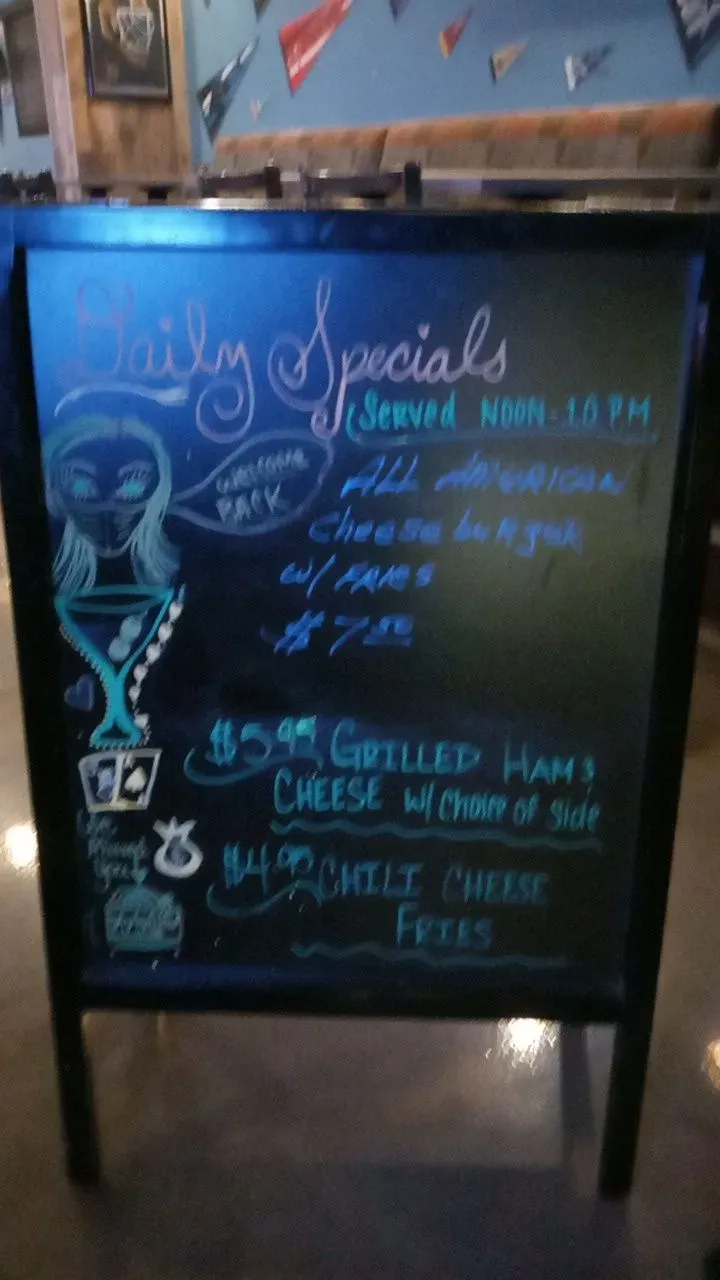 Daily Specials
Served NOON-10 PM
WELCOME
BACK
ALL AMERICAN
Cheese burger
w/ FRIES
$7.50
$5.95 GRILLED HAM &
CHEESE w/ Choice of Side
$4.95 CHILI CHEESE
FRIES
A